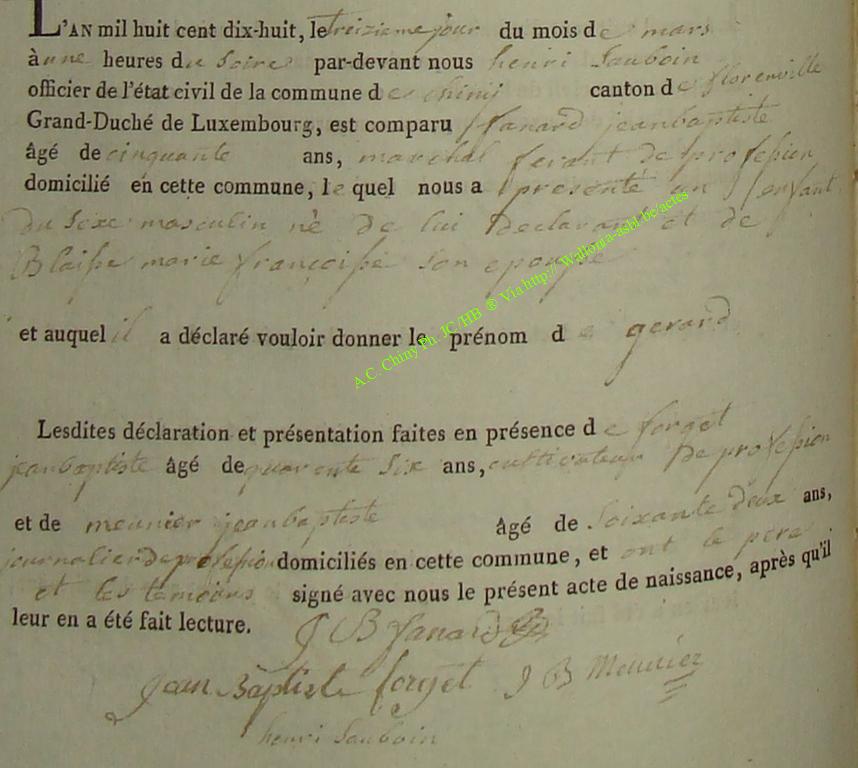 L'AN mil huit cent dix-huit, le treizieme jour du mois de mars
à une heures du Soire par-devant nous henri Sauboin
officier de l'état civil de la commune de chini canton de florenville
Grand-Duché de Luxembourg, est comparu jeanbaptiste
âgé de cinquante ans, marchal ferant de profession
domicilié en cette commune, le quel nous a presenté un enfant
du Sexe masculin né de lui declarant et de
Blaisse marie françoisse son epouse
et auquel il a déclaré vouloir donner le prénom de gerard
Lesdites déclaration et présentation faites en présence de forget
jeanbaptiste âgé de quarente Six ans, cultivateur de profession
et de meunier jeanbaptiste âgé de Soixante deux ans,
journalier de profession domiciliés en cette commune, et ont le pere
et les temoins signé avec nous le présent acte de naissance, après qu'il
leur en a été fait lecture.
J B
jean Baptiste forget J B Meunier
henri Sauboin
A.C. Chiny Ph. JC/HB ® Via http://Wallonia-asbl.be/actes